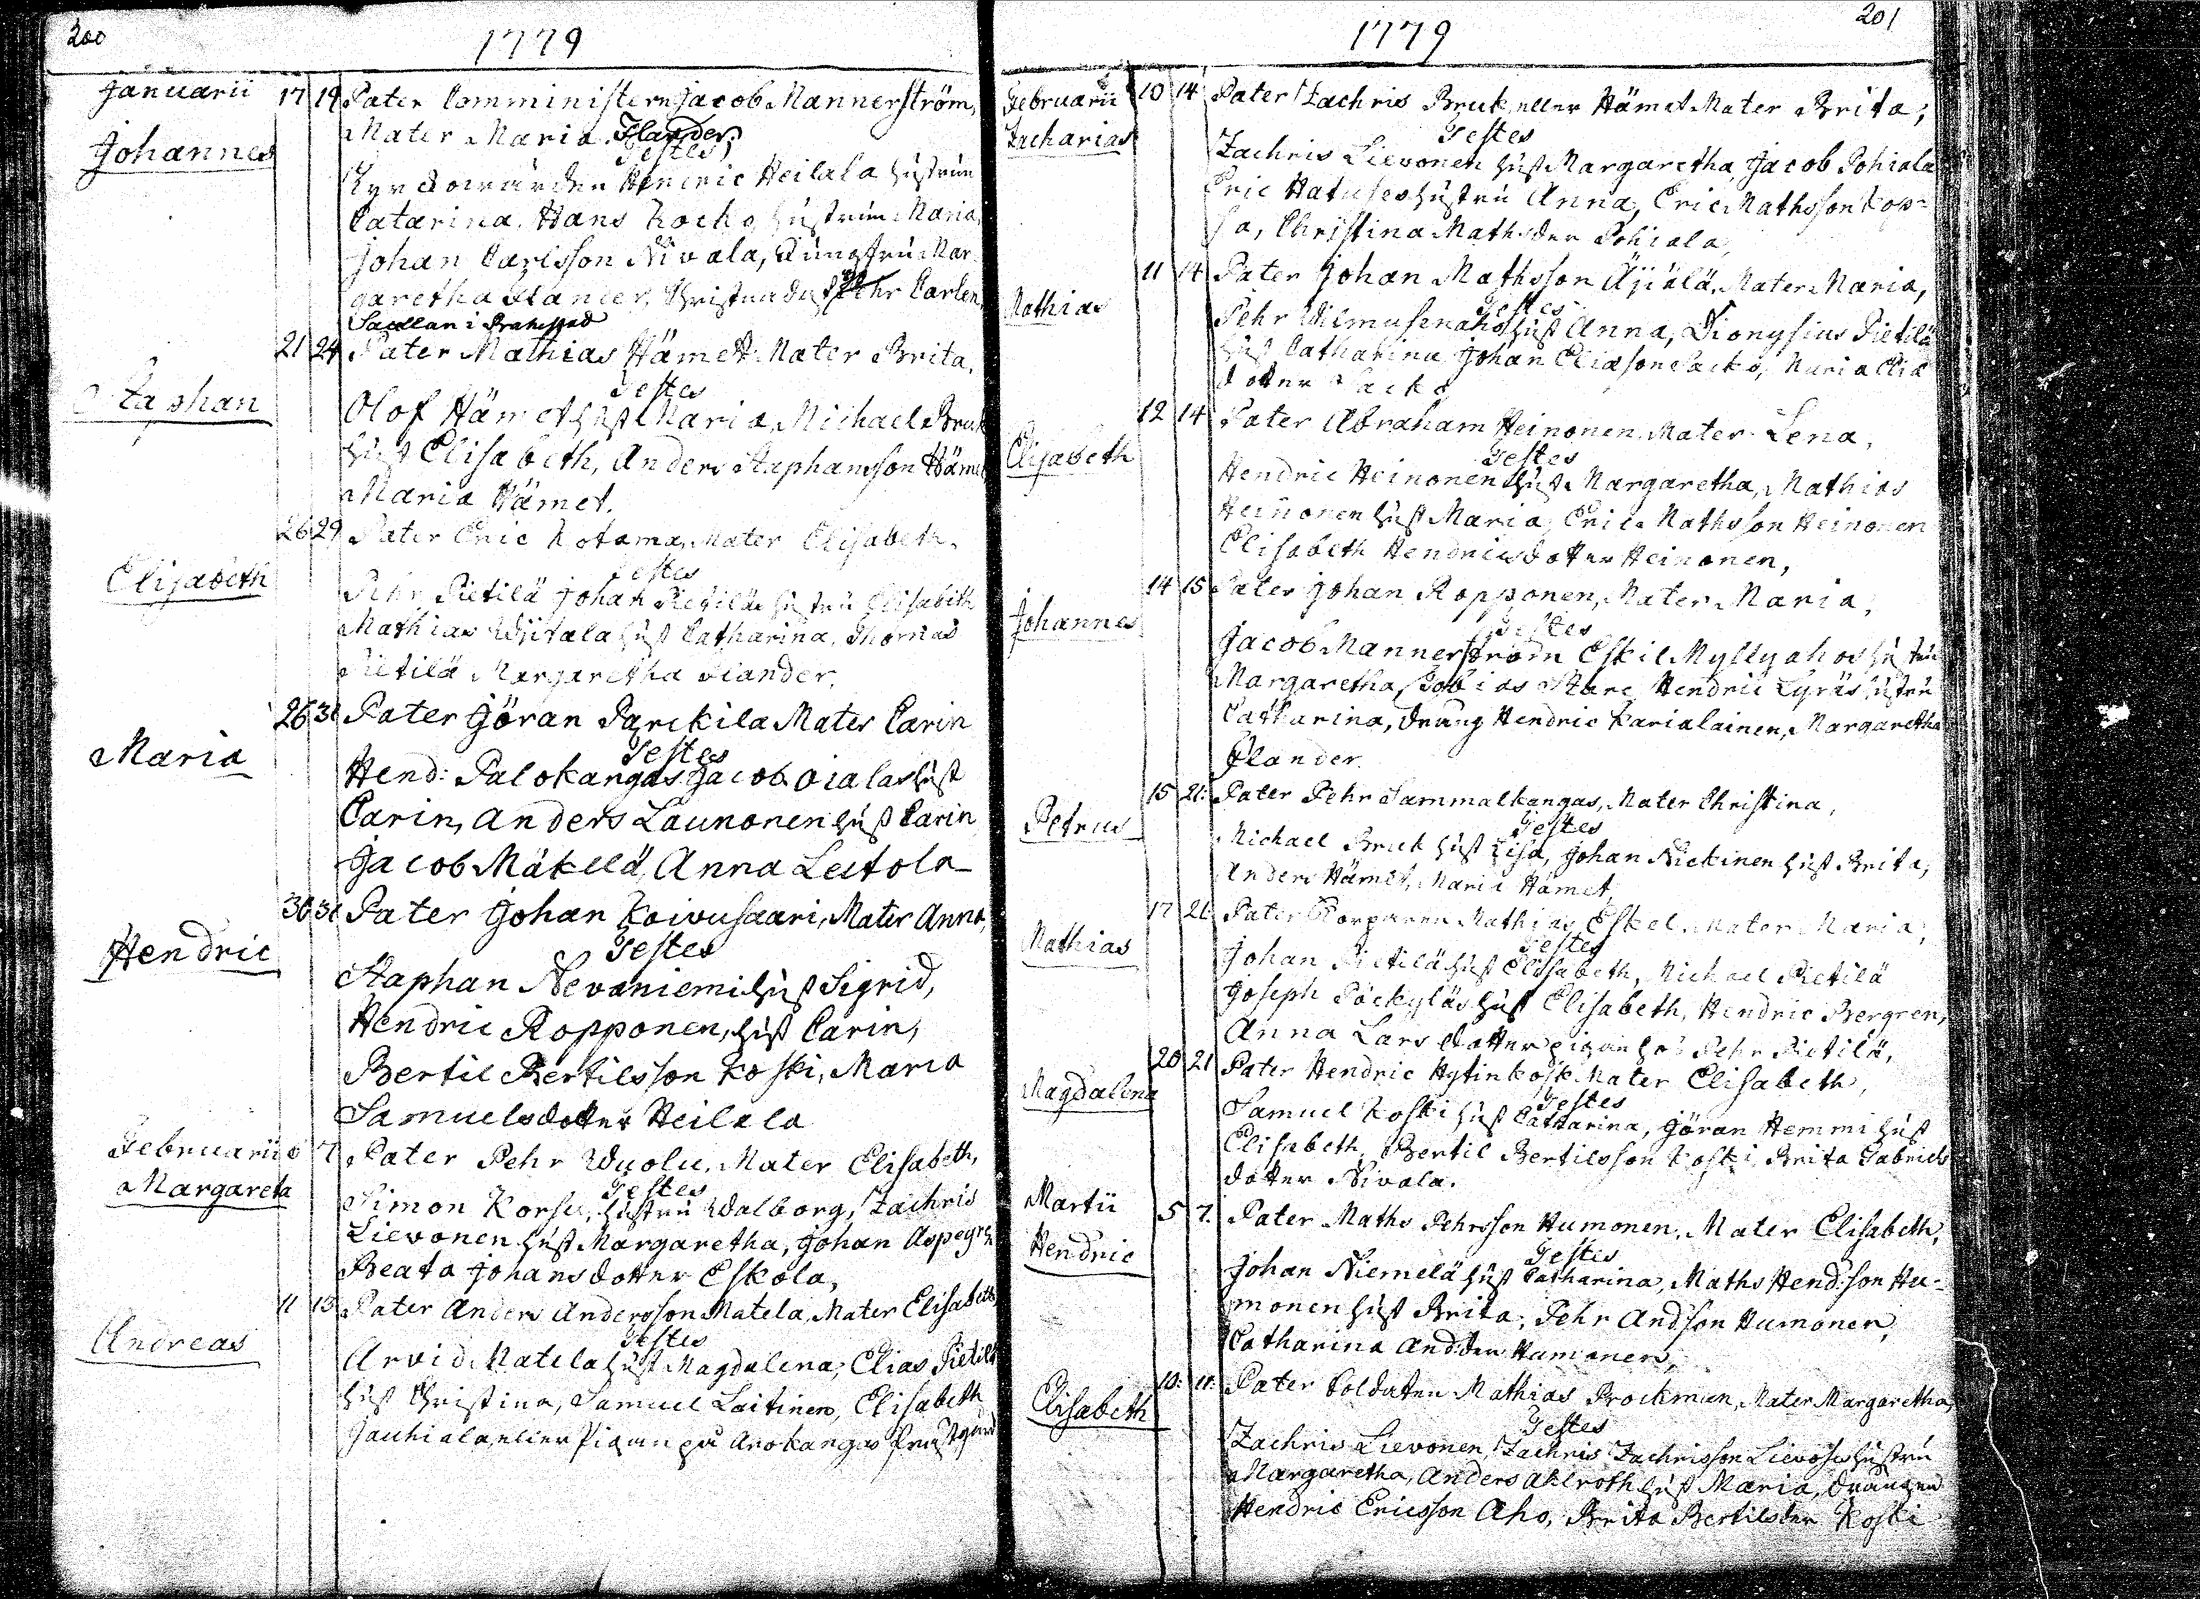 200
1779
Januarii 17 19 Pater Comministern Jacob Mannerström,
Mater Maria Flander,
Johannes
Testes,
Kyrckowärden Hendric Heilala hustrun
Catarina. Hans Kocko hustrun Maria,
Johan Carlsson Nivala, Jungfru Mar-
garetha Flander, Pehr Carlen,
i Brahestad
21 24 Pater Mathias Hämet Mater Brita,
Staphan
Testes
Olof Hämet hust Maria, Michael Bruk
hust Elisabeth, Anders Staphansson Hämet
Maria Hämet.
26 29 Pater Eric Kotama, Mater Elisabeth,
Elisabeth
Testes
Pehr Pietilä Johan Pietilä hustru Elisabeth
Mathias Wiitala hust Catharina, Thomas
Pietilä Margaretha Flander.
26 31 Pater Göran Parckila Mater Carin
Maria
Testes
Hend: Palokangas Jacob Oialas hust
Carin, Anders Launonen hust Carin
Jacob Mäkelä, Anna Leitola
30 31 Pater Johan Koivusaari, Mater Anna,
Hendric
Testes
Staphan Nevaniemi hust Sigrid,
Hendric Ropponen, hust Carin,
Bertil Bertilsson Koski, Maria
Samuelsdotter Heilala
Februarii 6 7 Pater Pehr Wuolu, Mater Elisabeth,
Margareta
Testes
Simon Korsu, hustru Walborg, Zachris
Lievonen hust Margaretha, Johan Aspegren
Beata Johansdotter Eskola,
11 13 Pater Anders Andersson Matela, Mater Elisabeth
Andreas
Testes
Arvid Matela hust Magdalena, Elias Pietilä
hust Christina, Samuel Laitinen, Elisabeth
Jauhiala eller Pigan på Arokangas
201
1779
Februarii 10 14 Pater Zachris Bruk eller Hämet Mater Brita,
Zacharias
Testes
Zachris Lievonen hust Margaretha, Jacob Pohiala
Eric hustru Anna, Eric Mathsson Kop-
sa, Christina Mathsder Pohiala,
11 14 Pater Johan Mathsson Äijälä, Mater Maria,
Mathias
Testes
Pehr Wilmusenaho hust Anna, Dionysius Pietilä
hust Catharina Johan Eliasson Sacko, Maria Elias
dotter Sacko
12 14 Pater Abraham Heinonen, Mater Lena,
Elisabeth
Testes
Hendric Heinonen hust Margaretha, Mathias
Heinonen hust Maria, Eric Mathsson Heinonen
Elisabeth Hendricsdotter Heinonen,
14 15 Pater Johan Ropponen, Mater Maria,
Johannes
Testes
Jacob Mannerström Eskil Myllyahos hustru
Margaretha, Tobias Stare Hendric Lyräs hustru
Catharina, Dräng Hendric Karialainen, Margaretha
Flander.
15 21: Pater Pehr Sammalkangas, Mater Christina,
Petrus
Testes
Michael Bruk hust Lisa, Johan Nickinen hust Brita,
Anders Hämet, Maria Hämet,
17 21 Pater Korparen Mathias Eskel. Mater Maria,
Mathias
Testes
Johan Pietilä hust Elisabeth, Michael Pietilä
Joseph Pöckyläs hust Elisabeth, Hendric Bergren,
Anna Larsdotter pigan hos Pehr Pietilä,
20 21 Pater Hendric Hytinkosk: Mater Elisabeth,
Magdalena
Testes
Samuel Koski hust Catharina, Göran Hemmi hust
Elisabeth, Bertil Bertilsson Koski, Brita Gabriels
dotter Nivala.
Martii 5 7. Pater Maths Pehrsson Humonen, Mater Elisabeth,
Hendric
Testes
Johan Niemelä hust Catharina, Maths Hend:son Hu-
monen hust Brita, Pehr Andson Humonen,
Catharina And:der Humonen,
10: 11: Pater Soldaten Mathias Brockman, Mater Margaretha,
Elisabeth
Testes
Zachris Lievonen, Zachris Zachrisson Lievoses hustru
Margaretha, Anders Ahlroth hust Maria, Drängen
Hendric Ericsson Aho, Brita Bertilsder Koski